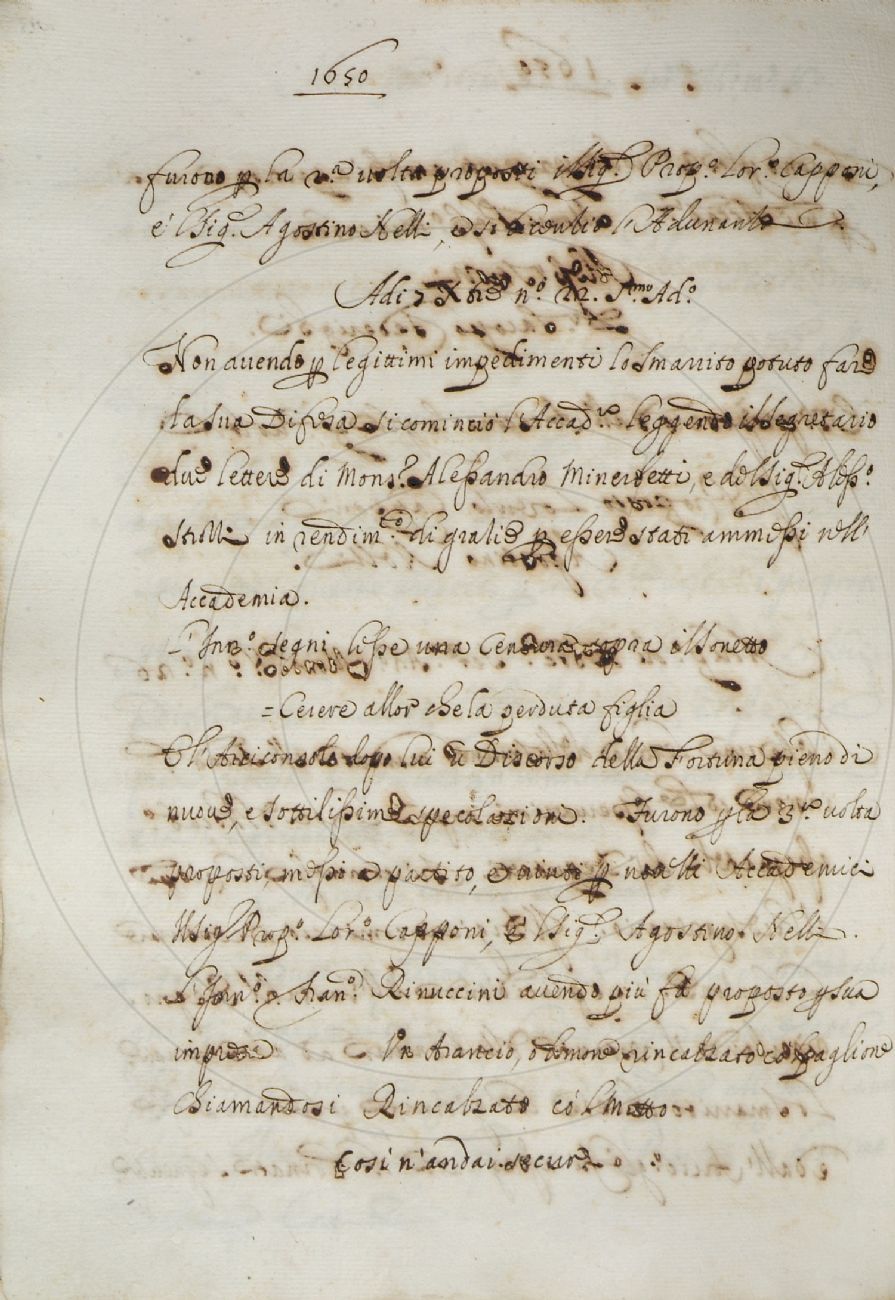 1650
furono p. la 2.ª volta proposti il Sig.r Prop.o Lor.o Capponi,
e 'l Sig.r Agostino Nelli, e si licenziò l'Adunanza
Adi 7 Xbre n.o 22. Ad.a
Non avendo p legittimi impedimenti lo Smarrito potuto fare
la sua Difesa si cominciò l'Accad.a leggendo il Segretario
due lettere di Mons.r Alessandro Minerbetti, e del Sig.r Aless.o
Strozzi in rendim.to di grazie p essere stati ammessi nell'
Accademia.
L'Inn.o Segni lesse una Censura sopra il Sonetto
= Cerere allor che la perduta figlia
E l'Arciconsolo dopo lui ũ Discorso della Fortuna pieno di
nuove, e sottilissime specolazioni. Furono p la 3.ª volta
proposti, messi a partito, e vinti p novelli Accademici
Il Sig.r Prop.o Lor.o Capponi, e 'l Sig.r Agostino Nelli.
L'Inn.o Fran.o Rinuccini avendo più fa proposto p sua
impresa Un Arancio, o limone rincalzato cõ paglione
Chiamandosi Rincalzato cõ 'l Motto
Così n'andai secur